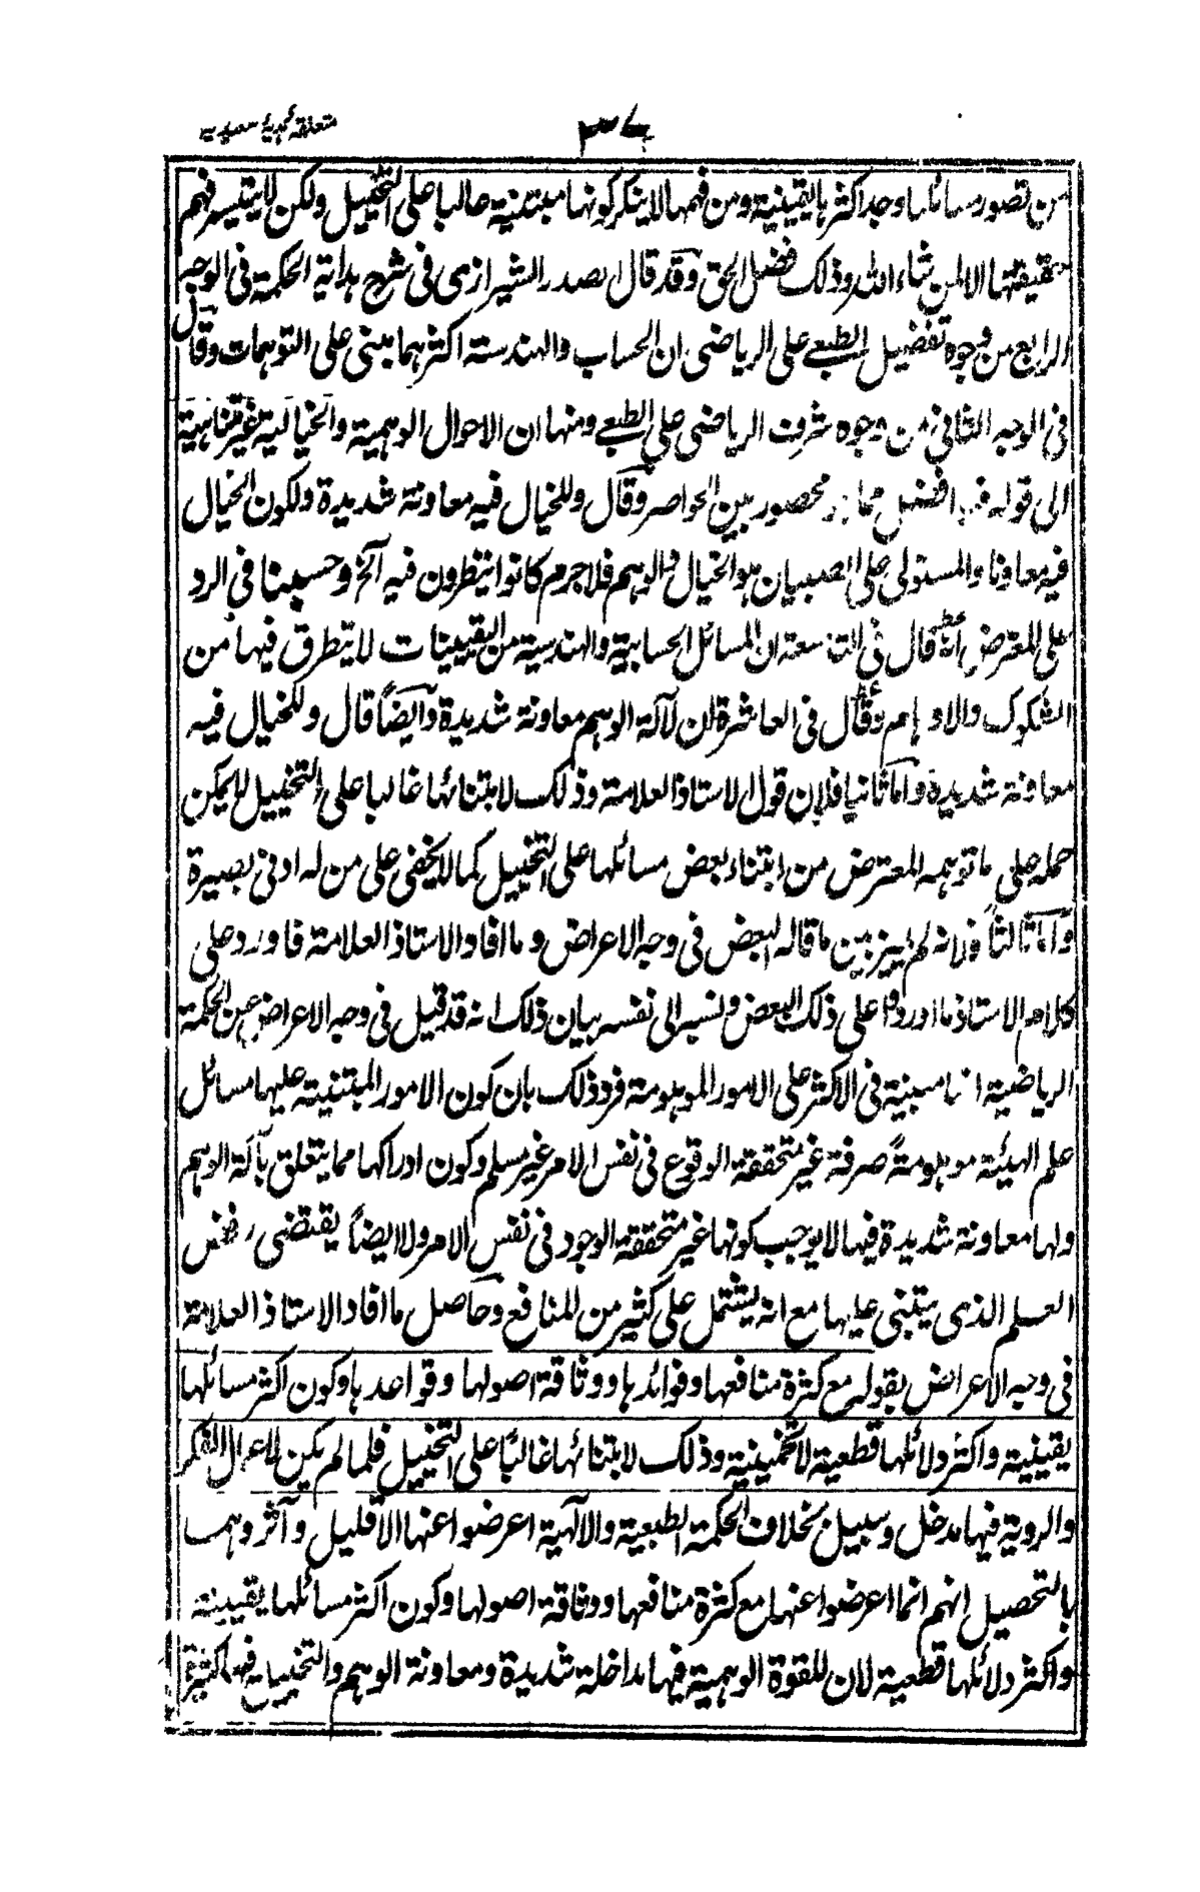 متعلقہ ہدیۂ سعیدیہ
٣٧
من تصور مسائلها وجد اكثرها يقينية ومن فهمها لا ينكر كونها مبتنية غالبا على التخييل ولكن لا يتيسر فهم
حقيقتها الا لمن شاء الله وذلك فضل الحق وقد قال الصدر الشيرازى فى شرح هداية الحكمة فى الوجه
الرابع من وجوه تفضيل الطبعے على الرياضى ان الحساب والهندسة اكثرهما مبنى على التوهمات وقال
فى الوجه الثانى من وجوه شرف الرياضى على الطبعے ومنها ان الاحوال الوهمية والخيالية غير متناهية
الى قوله افضل مما محصور بين الحواصر وقال وللخيال فيه معاونة شديدة ولكون الخيال
فيه معاونا والمستولى على الصبيان هو الخيال والوهم فلا جرم كانوا ينظرون فيه آلخ وحسبنا فى الرد
على المعترض انه قال فى التاسعة ان المسائل الحسابية والهندسية من اليقينيات لا يتطرق فيها من
الشكوك والاوهام وقال فى العاشرة ان لآلة الوهم معاونة شديدة وآيضاً قال وللخيال فيه
معاونة شديدة وآما ثانيا فلان قول الاستاذ العلامة وذلك لابتنائها غالبا على التخييل لا يمكن
حمله على ما توهمه المعترض من ابتناء بعض مسائلها على التخييل كما لا يخفى على من له ادنى بصيرة
وآما ثالثاً فلانه لم يميز بين ما قاله البعض فى وجه الاعراض وما افاد الاستاذ العلامة فاورد على
كلام الاستاذ ما اوردوا على ذلك البعض ونسبه الى نفسه بيان ذلك انه قد قيل فى وجه الاعراض عن الحكمة
الرياضية انها مبنية فى الاكثر على الامور الموهومة فرد ذلك بان كون الامور المبتنية عليها مسائل
علم الهيئة موهومةً صرفة غير متحققة الوقوع فى نفس الامر غير مسلم وكون ادراكها مما يتعلق بآلة الوهم
ولها معاونة شديدة فيها لا يوجب كونها غير متحققة الوجود فى نفس الامر ولا ايضاً يقتضى رفض
العلم الذى يبتنى عليها مع انه يشتمل على كثير من المنافع وحاصل ما افاد الاستاذ العلامة
فى وجه الاعراض بقوله مع كثرة منافعها وفوائدها ووثاقة اصولها وقواعدها وكون اكثر مسائلها
يقينية واكثر دلائلها قطعية لا تخمينية وذلك لابتنائها غالبًا على التخييل فلما لم يكن لاعمال الفكر
والروية فيها مدخل وسبيل بخلاف الحكمة الطبعية والالهية اعرضوا عنها الا قليل وآثروهما
بالتحصيل انهم انما اعرضوا عنها مع كثرة منافعها ووثاقة اصولها وكون اكثر مسائلها يقينية
واكثر دلائلها قطعية لان للقوة الوهمية فيها مداخلة شديدة ومعاونة الوهم والتخييل فيها كثيرة